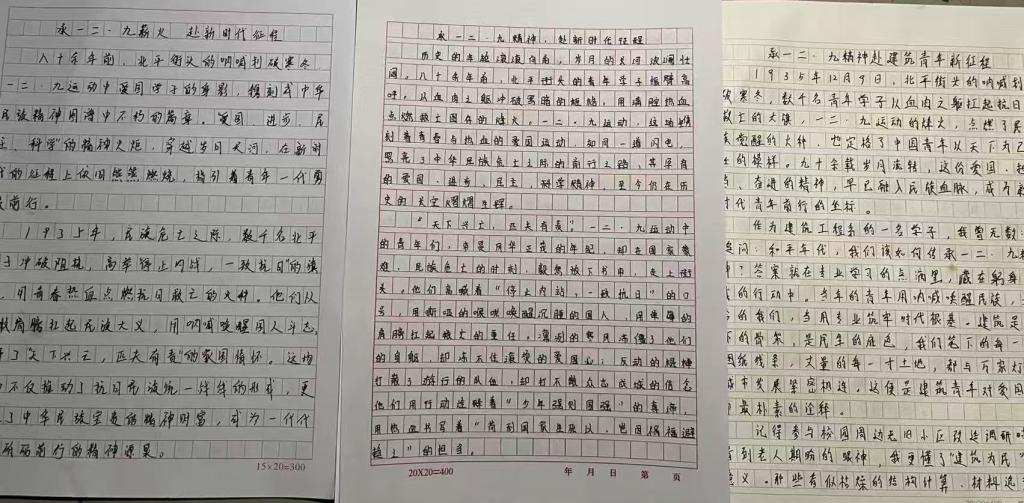 承一二·九薪火 赴新时代征程
八十余年前，北平街头的呐喊刺破寒冬，
一二·九运动中爱国学子的身影，镌刻成中华
民族精神图谱中不朽的篇章。爱国、进步、民
主、科学"的精神火炬，穿越岁月长河，在新时
的征程上依旧熊熊燃烧，指引着青年一代勇
前行。
1935年，民族危亡之际，数千名北平
冲破阻挠，高举停止内战，一致抗日"的旗
，用青春热血点燃抗日救亡的火种。他们以
肩膀扛起民族大义，用呐喊唤醒国人斗志，
了"天下兴亡，匹夫有责"的家国情怀。这场
不仅推动了抗日民族统一战线的形成，更
了中华民族宝贵的精神财富，成为一代代
砥砺前行的精神源泉。
15×20=300
承一二·九精神，赴新时代征程
历史的车轮滚滚向前，岁月的长河波澜壮
阔。八十余年前，北平街头的青年学子振臂高
呼，以血肉之躯冲破黑暗的枷锁，用满腔热血
点燃救亡图存的烽火。一二·九运动，这场镌
刻着青春与热血的爱国运动，如同一道闪电，
照亮了中华民族危亡之际的前行之路，其孕育
的爱国、进步、民主、科学精神，至今仍在历
史的天空熠熠生辉。
"天下兴亡，匹夫有责。"一二·九运动中
的青年们，本是风华正茂的年纪，却在国家蒙
难、民族危亡的时刻，毅然放下书本，走上街
头。他们高喊着"停止内战，一致抗日"的口
号，用嘶哑的喉咙唤醒沉睡的国人，用单薄的
肩膀扛起救亡的重任，凛冽的寒风冻僵了他们
的身躯，却冻不住滚烫的爱国心；反动的棍棒
打散了游行的队伍，却打不散众志成城的信念
他们用行动诠释着"少年强则国强"的真谛，
用热血书写着"苟利国家生死以，岂因祸福避
趋之"的担当。
20×20=400 年 月 日 第 页
承一二·九精神赴建筑青年新征程
1935年12月9日，北平街头的呐喊刺
破寒冬，数千名青年学子以血肉之躯扛起抗日
救亡的大旗，一二·九运动的烽火，点燃了民
族觉醒的火种，也定格了中国青年以天下为己
的模样。九十余载岁月流转，这份爱国、担
、奋进的精神，早已融入民族血脉，成为新
时代青年前行的坐标。
作为建筑工程系的一名学子，我曾无数次
追问：和平年代，我们该如何传承一二·九精
神？答案就在专业学习的点滴里，藏在躬身
的行动中。当年的青年用呐喊唤醒民族，
的我们，当用专业筑牢时代根基。建筑是
的骨架，是民生的底色，我们笔下的每一
图纸线条，丈量的每一寸土地，都与万家灯
城市发展紧密相连，这便是建筑青年对爱国
最朴素的诠释。
记得参与校园周边老旧小区改造调研时
看到老人期盼的眼神，我更懂了"建筑为民"
意义。那些看似枯燥的结构计算、材料选